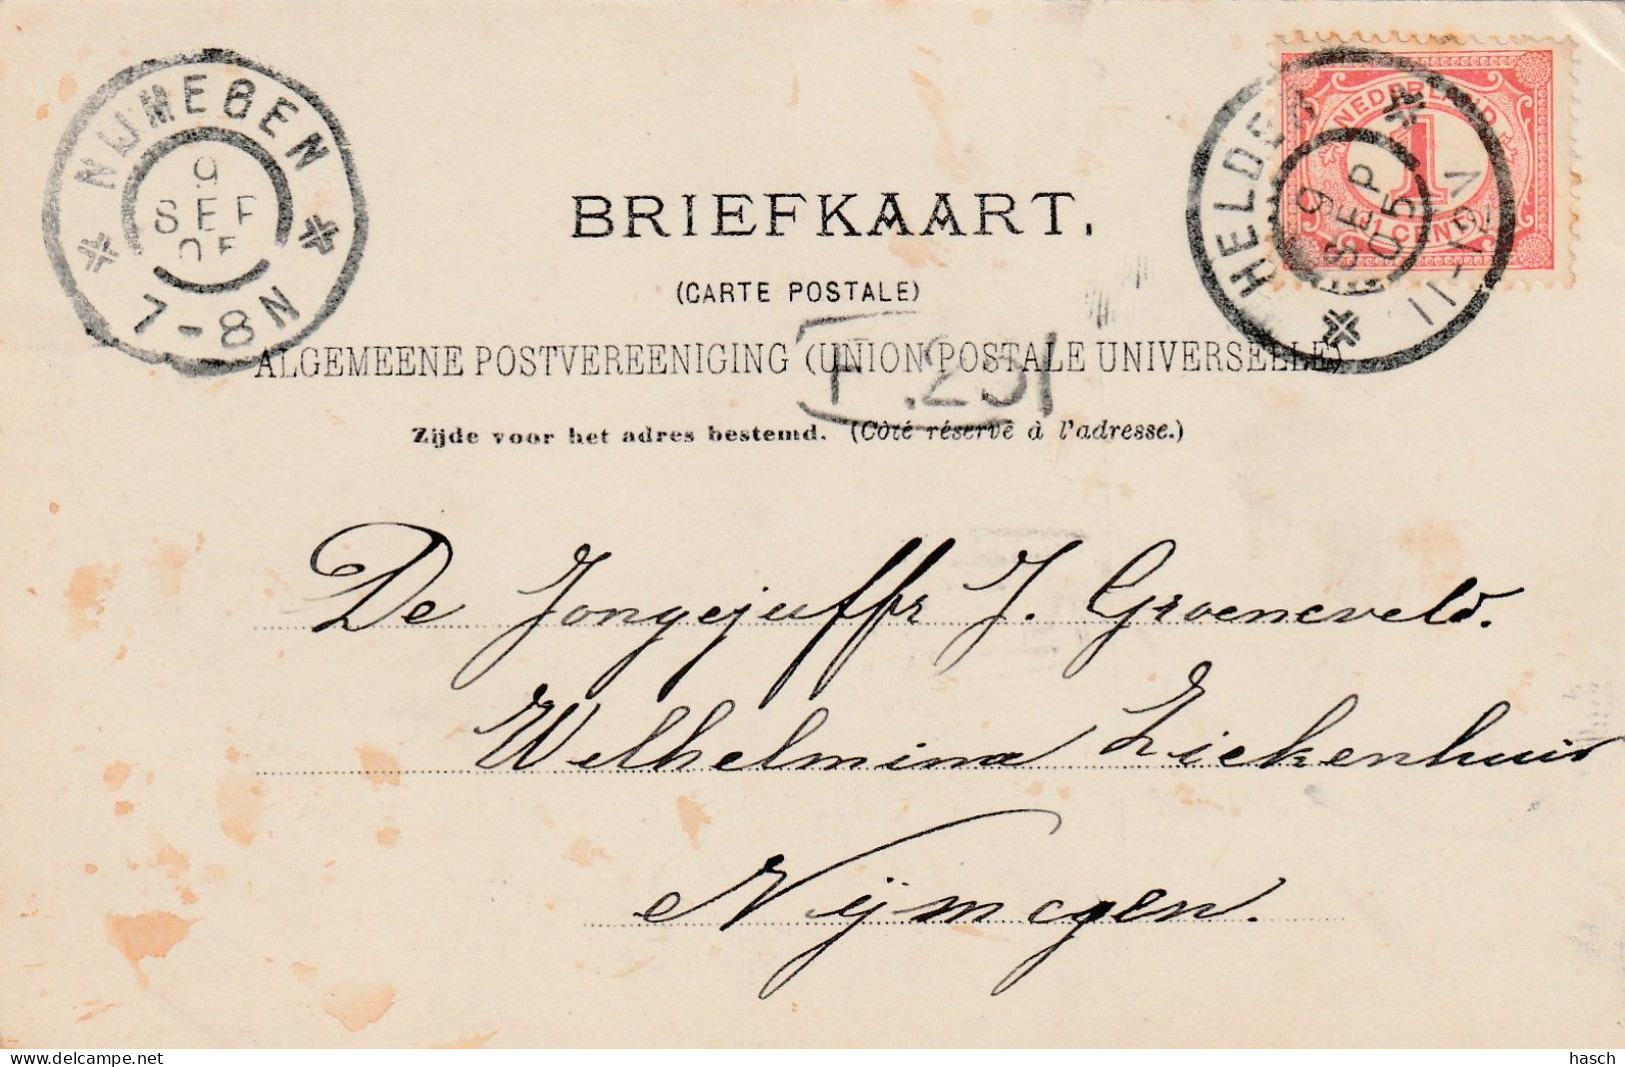 NIJMEGEN
9
SEP
05
7-8N
NEDERLAND
1
CENT
HELDER
9
SEP
05
11-12V
BRIEFKAART.
(CARTE POSTALE)
ALGEMEENE POSTVEREENIGING (UNION POSTALE UNIVERSELLE)
Zijde voor het adres bestemd. (Côté réservé à l'adresse.)
De Jongejuffr J. Groeneveld.
Wilhelmina Ziekenhuis
Nijmegen.
www.delcampe.net
hasch